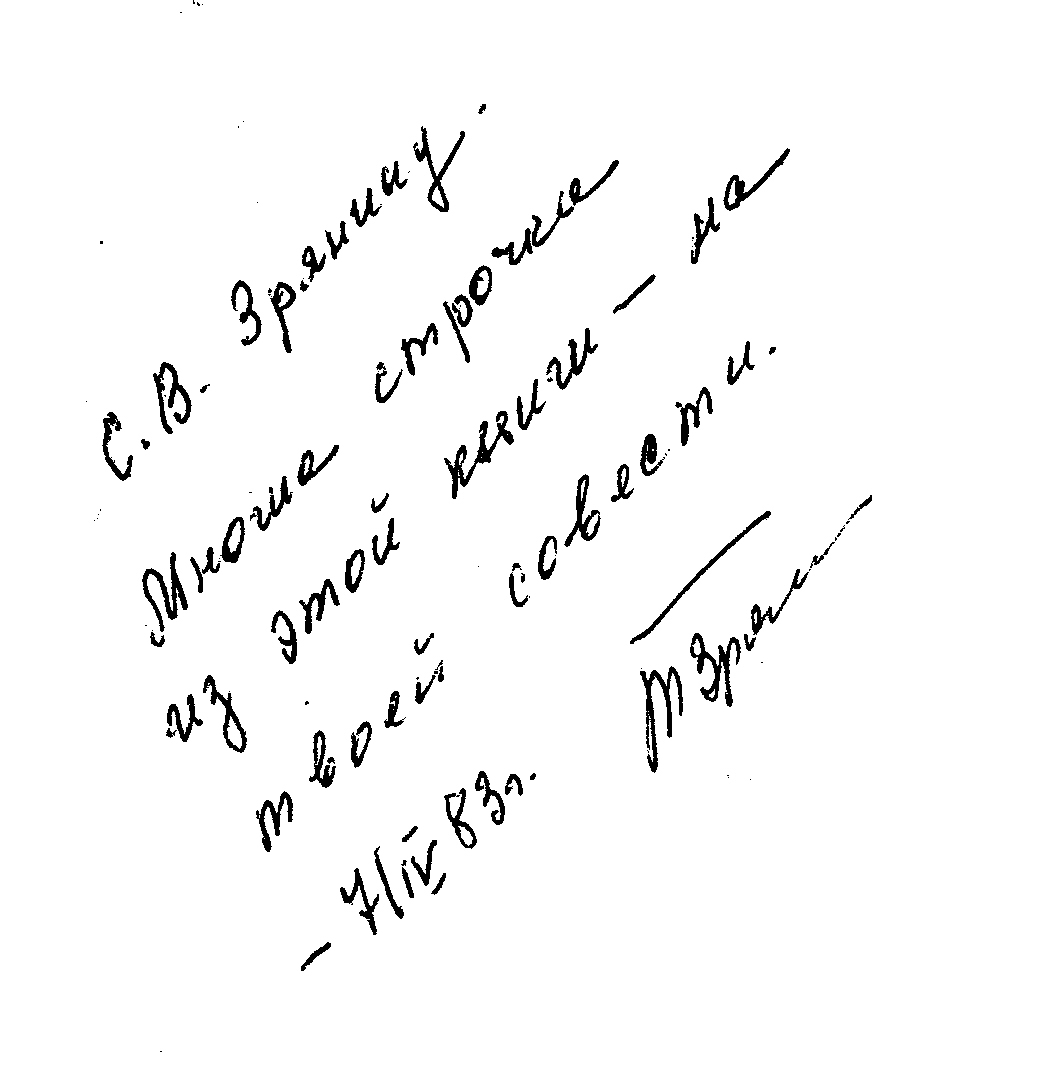 С. В. Зрянину.
Многие строчки
из этой книги – на
твоей совести.
ТЗрянин
– 7/IV 83г.